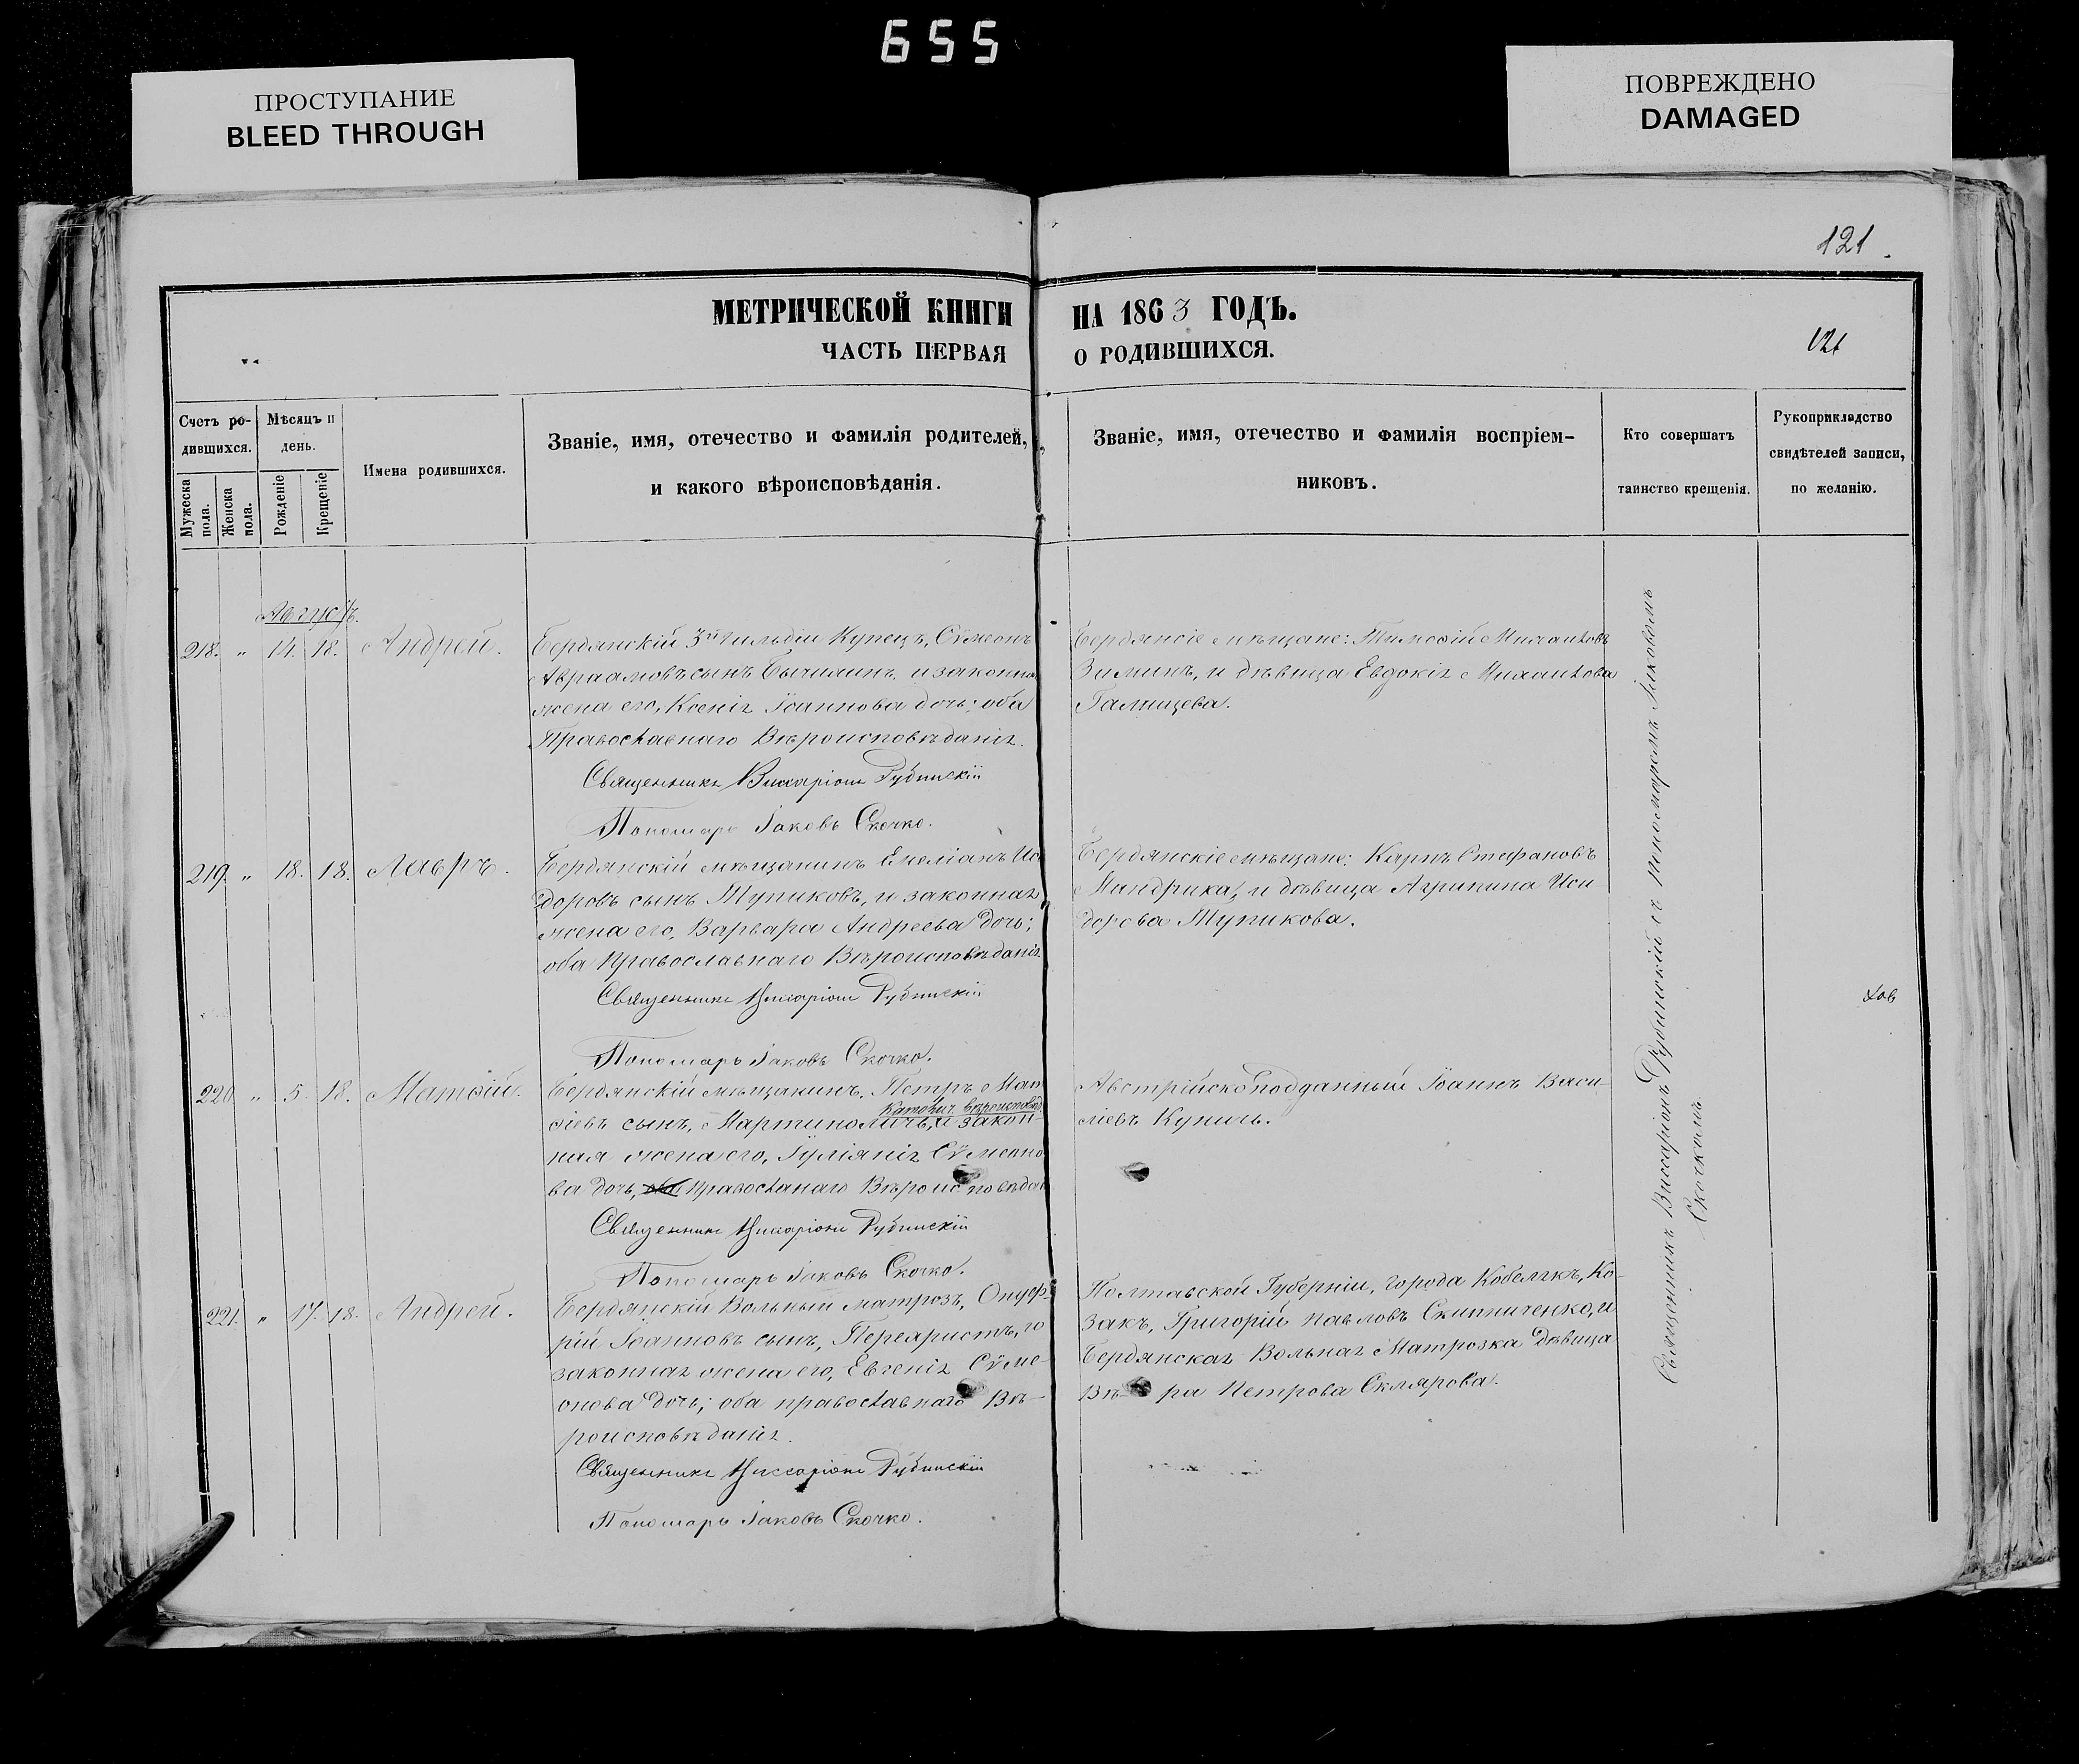 655
ПРОСТУПАНИЕ
BLEED THROUGH
ПОВРЕЖДЕНО
DAMAGED
121.
МЕТРИЧЕСКОЙ КНИГИ НА 1863 ГОДЪ.
ЧАСТЬ ПЕРВАЯ О РОДИВШИХСЯ.
121
Счетъ ро-
дившихся.
Мужеска пола.
Женска пола.
Мѣсяцъ и
день.
Рожденіе
Крещеніе
Имена родившихся.
Званіе, имя, отечество и фамилія родителей,
и какого вѣроисповѣданія.
Званіе, имя, отечество и фамилія воспріем-
никовъ.
Кто совершатъ
таинство крещенія.
Рукоприкладство
свидѣтелей записи,
по желанію.
Августъ.
218. " 14. 18. Андрей.
Бердянскій 3й гильдіи Купецъ, Сѵмеонъ
Авраамовъ сынъ Бычихинъ, и законна
жена его, Ксенія Іоаннова дочь; оба
Православнаго Вѣроисповѣданія.
Священникъ Виссаріонъ Рубинскій
Пономарь Іаковъ Скочко.
Бердянскіе мѣщане: Тимоѳій Михаиловъ
Зиминъ, и дѣвица Евдокія Михаилова
Галницева.
219. " 18. 18. Лавръ.
Бердянскій мѣщанинъ Емеліанъ Иси
доровъ сынъ Тупиковъ, и законная
жена его, Варвара Андреева дочь;
оба православнаго Вѣроисповѣданія
Священникъ Виссаріонъ Рубинскій
Пономарь Іаковъ Скочко.
Бердянскіе мѣщане: Карпъ Стефановъ
Мандрика, и дѣвица Агрипина Иси
дорова Тупикова.
ховъ
220 " 5. 18. Матѳій.
Бердянскій мѣщанинъ, Петръ Мат
ѳіевъ сынъ, Мартиноличъ, Католич. вѣроисповѣд. и закон
ная жена его, Іуліанія Сѵмеоно
ва дочь, православнаго Вѣроисповѣдан
Священникъ Виссаріонъ Рубинскій
Пономарь Іаковъ Скочко.
Австрійскоподданный Іоаннъ Васи-
ліевъ Куничь.
221. " 17. 18. Андрей.
Бердянскій Вольный матрозъ, Онуф-
рій Іоанновъ сынъ, Переаристъ, и
законная жена его, Евгенія Сѵме-
онова дочь; оба православнаго Вѣ-
роисповѣданія.
Священникъ Виссаріонъ Рубинскій
Пономарь Іаковъ Скочко.
Полтавской Губерніи, города Кобелякъ, Ко-
закъ, Григорій Павловъ Скипниченко, и
Бердянская Вольная Матрозка дѣвица
Вѣ-ра Петрова Склярова.
Священникъ Виссаріонъ Рубинскій съ Пономаремъ Іаковомъ
Скочкомъ.